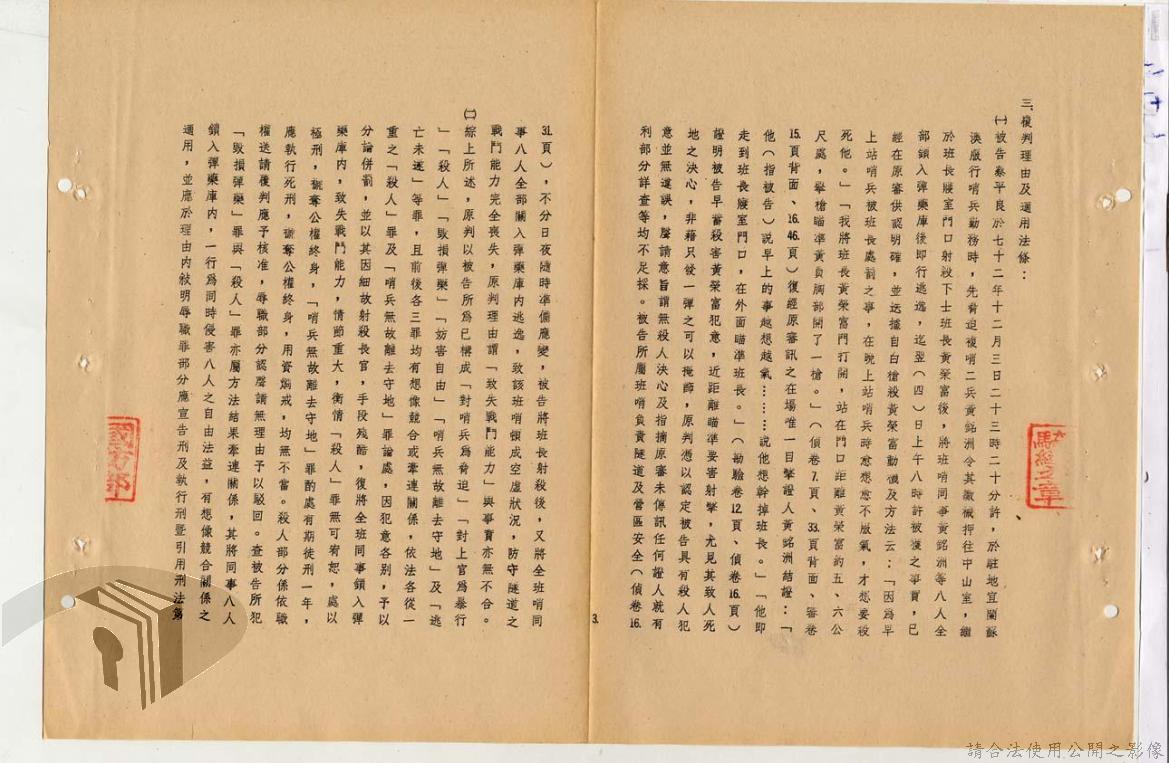 三、複判理由及適用法條：
㈠被告蔡平良於七十二年十二月三日二十三時二十分許，於駐地宜蘭蘇
澳服行哨兵勤務時，先脅迫複哨二兵黃銘洲令其繳械押往中山室，繼
於班長寢室門口射殺下士班長黃榮富後，將班哨同事黃銘洲等八人全
部鎖入彈藥庫後即行逃逸，迄翌（四）日上午八時許被獲之事實，已
經在原審供認明確，並迭據自白槍殺黃榮富動機及方法云：「因爲早
上站哨兵被班長處罰之事，在晚上站哨兵時愈想愈不服氣，才想要殺
死他。」「我將班長黃榮富門打開，站在門口距離黃榮富約五、六公
尺處，舉槍瞄準黃員胸部開了一槍。」（偵卷7.頁、33.頁背面、審卷
15.頁背面、16.46.頁）復經原審訊之在場唯一目擊證人黃銘洲結證：「
他（指被告）說早上的事越想越氣………說他想幹掉班長。」「他即
走到班長寢室門口，在外面瞄準班長。」（勘驗卷12.頁、偵卷16.頁）
證明被告早蓄殺害黃榮富犯意，近距離瞄準要害射擊，尤見其致人死
地之決心，非藉只發一彈之可以掩飾，原判憑以認定被告具有殺人犯
意並無違誤，聲請意旨謂無殺人決心及指摘原審未傳訊任何證人就有
利部分詳查等均不足採。被告所屬班哨負責隧道及營區安全（偵卷16.
31.頁），不分日夜隨時準備應變，被告將班長射殺後，又將全班哨同
事八人全部關入彈藥庫內逃逸，致該班哨頓成空虛狀況，防守隧道之
戰鬥能力完全喪失，原判理由謂「致失戰鬥能力」與事實亦無不合。
㈡綜上所述，原判以被告所爲已構成「對哨兵爲脅迫」「對上官爲暴行
」「殺人」「毀損彈藥」「妨害自由」「哨兵無故離去守地」及「逃
亡未遂」等罪，且前後各三罪均有想像競合或牽連關係，依法各從一
重之「殺人」罪及「哨兵無故離去守地」罪論處，因犯意各別，予以
分論併罰，並以其因細故射殺長官，手段殘酷，復將全班同事鎖入彈
藥庫內，致失戰鬥能力，情節重大，衡情「殺人」罪無可宥恕，處以
極刑，褫奪公權終身，「哨兵無故離去守地」罪酌處有期徒刑一年，
應執行死刑，褫奪公權終身，用資烱戒，均無不當。殺人部分係依職
權送請覆判應予核准，辱職部分認聲請無理由予以駁回。查被告所犯
「毀損彈藥」罪與「殺人」罪亦屬方法結果牽連關係，其將同事八人
鎖入彈藥庫內，一行爲同時侵害八人之自由法益，有想像競合關係之
適用，並應於理由內敍明辱職罪部分應宣告刑及執行刑暨引用刑法第
3.
國防部
騎縫之章
請合法使用公開之影像